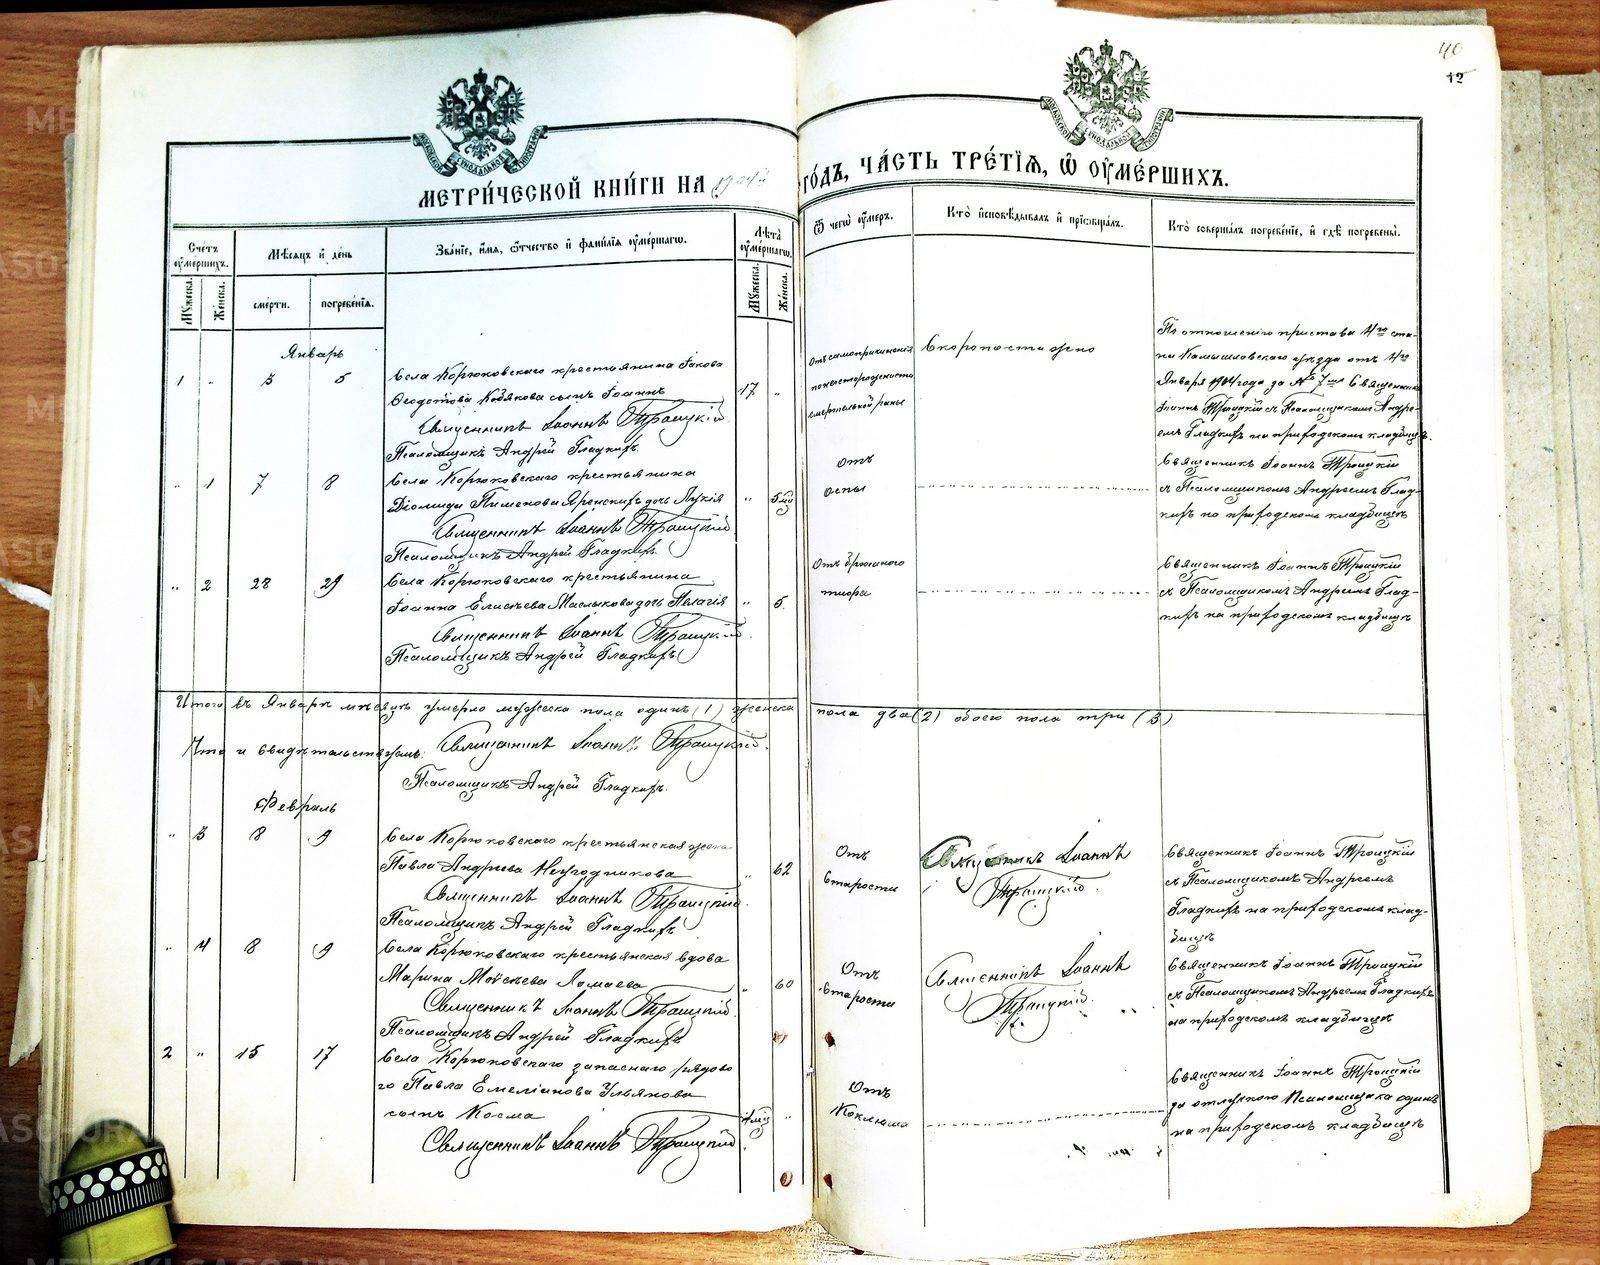 40
12
МЕТРИ́ЧЕСКОЙ КНИ́ГИ НА 1904й ГО́ДЪ, ЧА́СТЬ ТРЕ́ТІѦ, Ѽ ОУ҆МЕ́РШИХЪ.
Сче́тъ оу҆ме́ршихъ.
Мѣ́сѧцъ и҆ де́нь
Зва́нїе, и҆́мѧ, ѻ҆́тчество и҆ фами́лїѧ оу҆ме́ршагѡ.
Лѣ́та оу҆ме́ршагѡ.
Ѿ чегѡ̀ оу҆́меръ.
Кто̀ и҆сповѣ́дывалъ и҆ прїѡбща́лъ.
Кто̀ соверша́лъ погребе́нїе, и҆ гдѣ̀ погребены̀.
Му́жеска.
Же́нска.
сме́рти.
погребе́нїѧ.
Му́жеска.
Же́нска.
Январь
1 „ 3 5
Села Корюковскаго крестьянина Іакова
Ѳеодотова Кобякова сынъ Іоаннъ
17 „
Священникъ Іоаннъ Троицкій
Псаломщикъ Андрей Гладкихъ.
смертельной раны
Скоропостижно
По отношенію пристава 4го ста-
на Камышловскаго уѣзда отъ 4го
Января 1904 года за № 7 Священникъ
Іоаннъ Троицкій съ Псаломщикомъ Андре-
емъ Гладкихъ на приходскомъ кладбищѣ.
„ 1 7 8
Села Корюковскаго крестьянина
Діомида Пименова дочь Лукія
„ 5
Священникъ Іоаннъ Троицкій
Псаломщикъ Андрей Гладкихъ
Отъ
оспы
Священникъ Іоаннъ Троицкій
съ Псаломщикомъ Андреемъ Глад-
кихъ на приходскомъ кладбищѣ
„ 2 28 29
Села Корюковскаго крестьянина
Іоанна Елисѣева Маслыкова дочь Пелагія
„ 5.
Священникъ Іоаннъ Троицкій
Псаломщикъ Андрей Гладкихъ
Отъ брюшного
тифа
Священникъ Іоаннъ Троицкій
съ Псаломщикомъ Андреемъ Глад-
кихъ на приходскомъ кладбищѣ
Итого въ Январѣ мѣсяцѣ умерло мужеска пола одинъ (1) женска пола два (2) обоего пола три (3)
Что и свидѣтельствуемъ. Священникъ Іоаннъ Троицкій.
Псаломщикъ Андрей Гладкихъ.
Февраль
„ 3 8 9
Села Корюковскаго крестьянская жена
Павла Андреева Негодникова
„ 62
Священникъ Іоаннъ Троицкій.
Псаломщикъ Андрей Гладкихъ
Отъ
старости
Священникъ Іоаннъ
Троицкій.
Священникъ Іоаннъ Троицкій
съ Псаломщикомъ Андреемъ
Гладкихъ на приходскомъ клад-
бищѣ
„ 4 8 9
Села Корюковскаго крестьянская вдова
Марина Моѵсеева
„ 60
Священникъ Іоаннъ Троицкій.
Псаломщикъ Андрей Гладкихъ
Отъ
старости
Священникъ Іоаннъ
Троицкій.
Священникъ Іоаннъ Троицкій
съ Псаломщикомъ Андреемъ Гладкихъ
на приходскомъ кладбищѣ
2 „ 15 17
Села Корюковскаго запаснаго рядово
го Павла Емеліанова Ульянова
сынъ Косма
Священникъ Іоаннъ Троицкій
Отъ
Коклюша
Священникъ Іоаннъ Троицкій
за отлучкою Псаломщика одинъ
на приходскомъ кладбищѣ